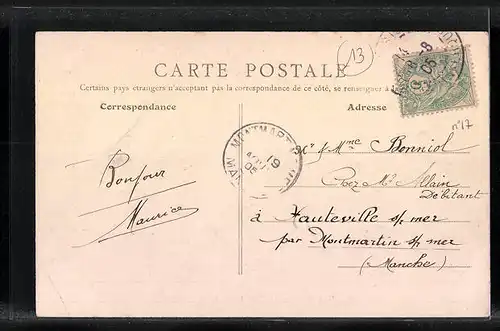 13
CARTE POSTALE
Certains pays étrangers n'acceptant pas la correspondance de ce côté, se renseigner à la
Correspondance
Adresse
n° 17
MONTMART
19
Bonjour
Maurice
Mr & Mme Bonniol
Chez Mr Allain
Débitant
à Hauteville s/ mer
par Montmartin s/ mer
(Manche)